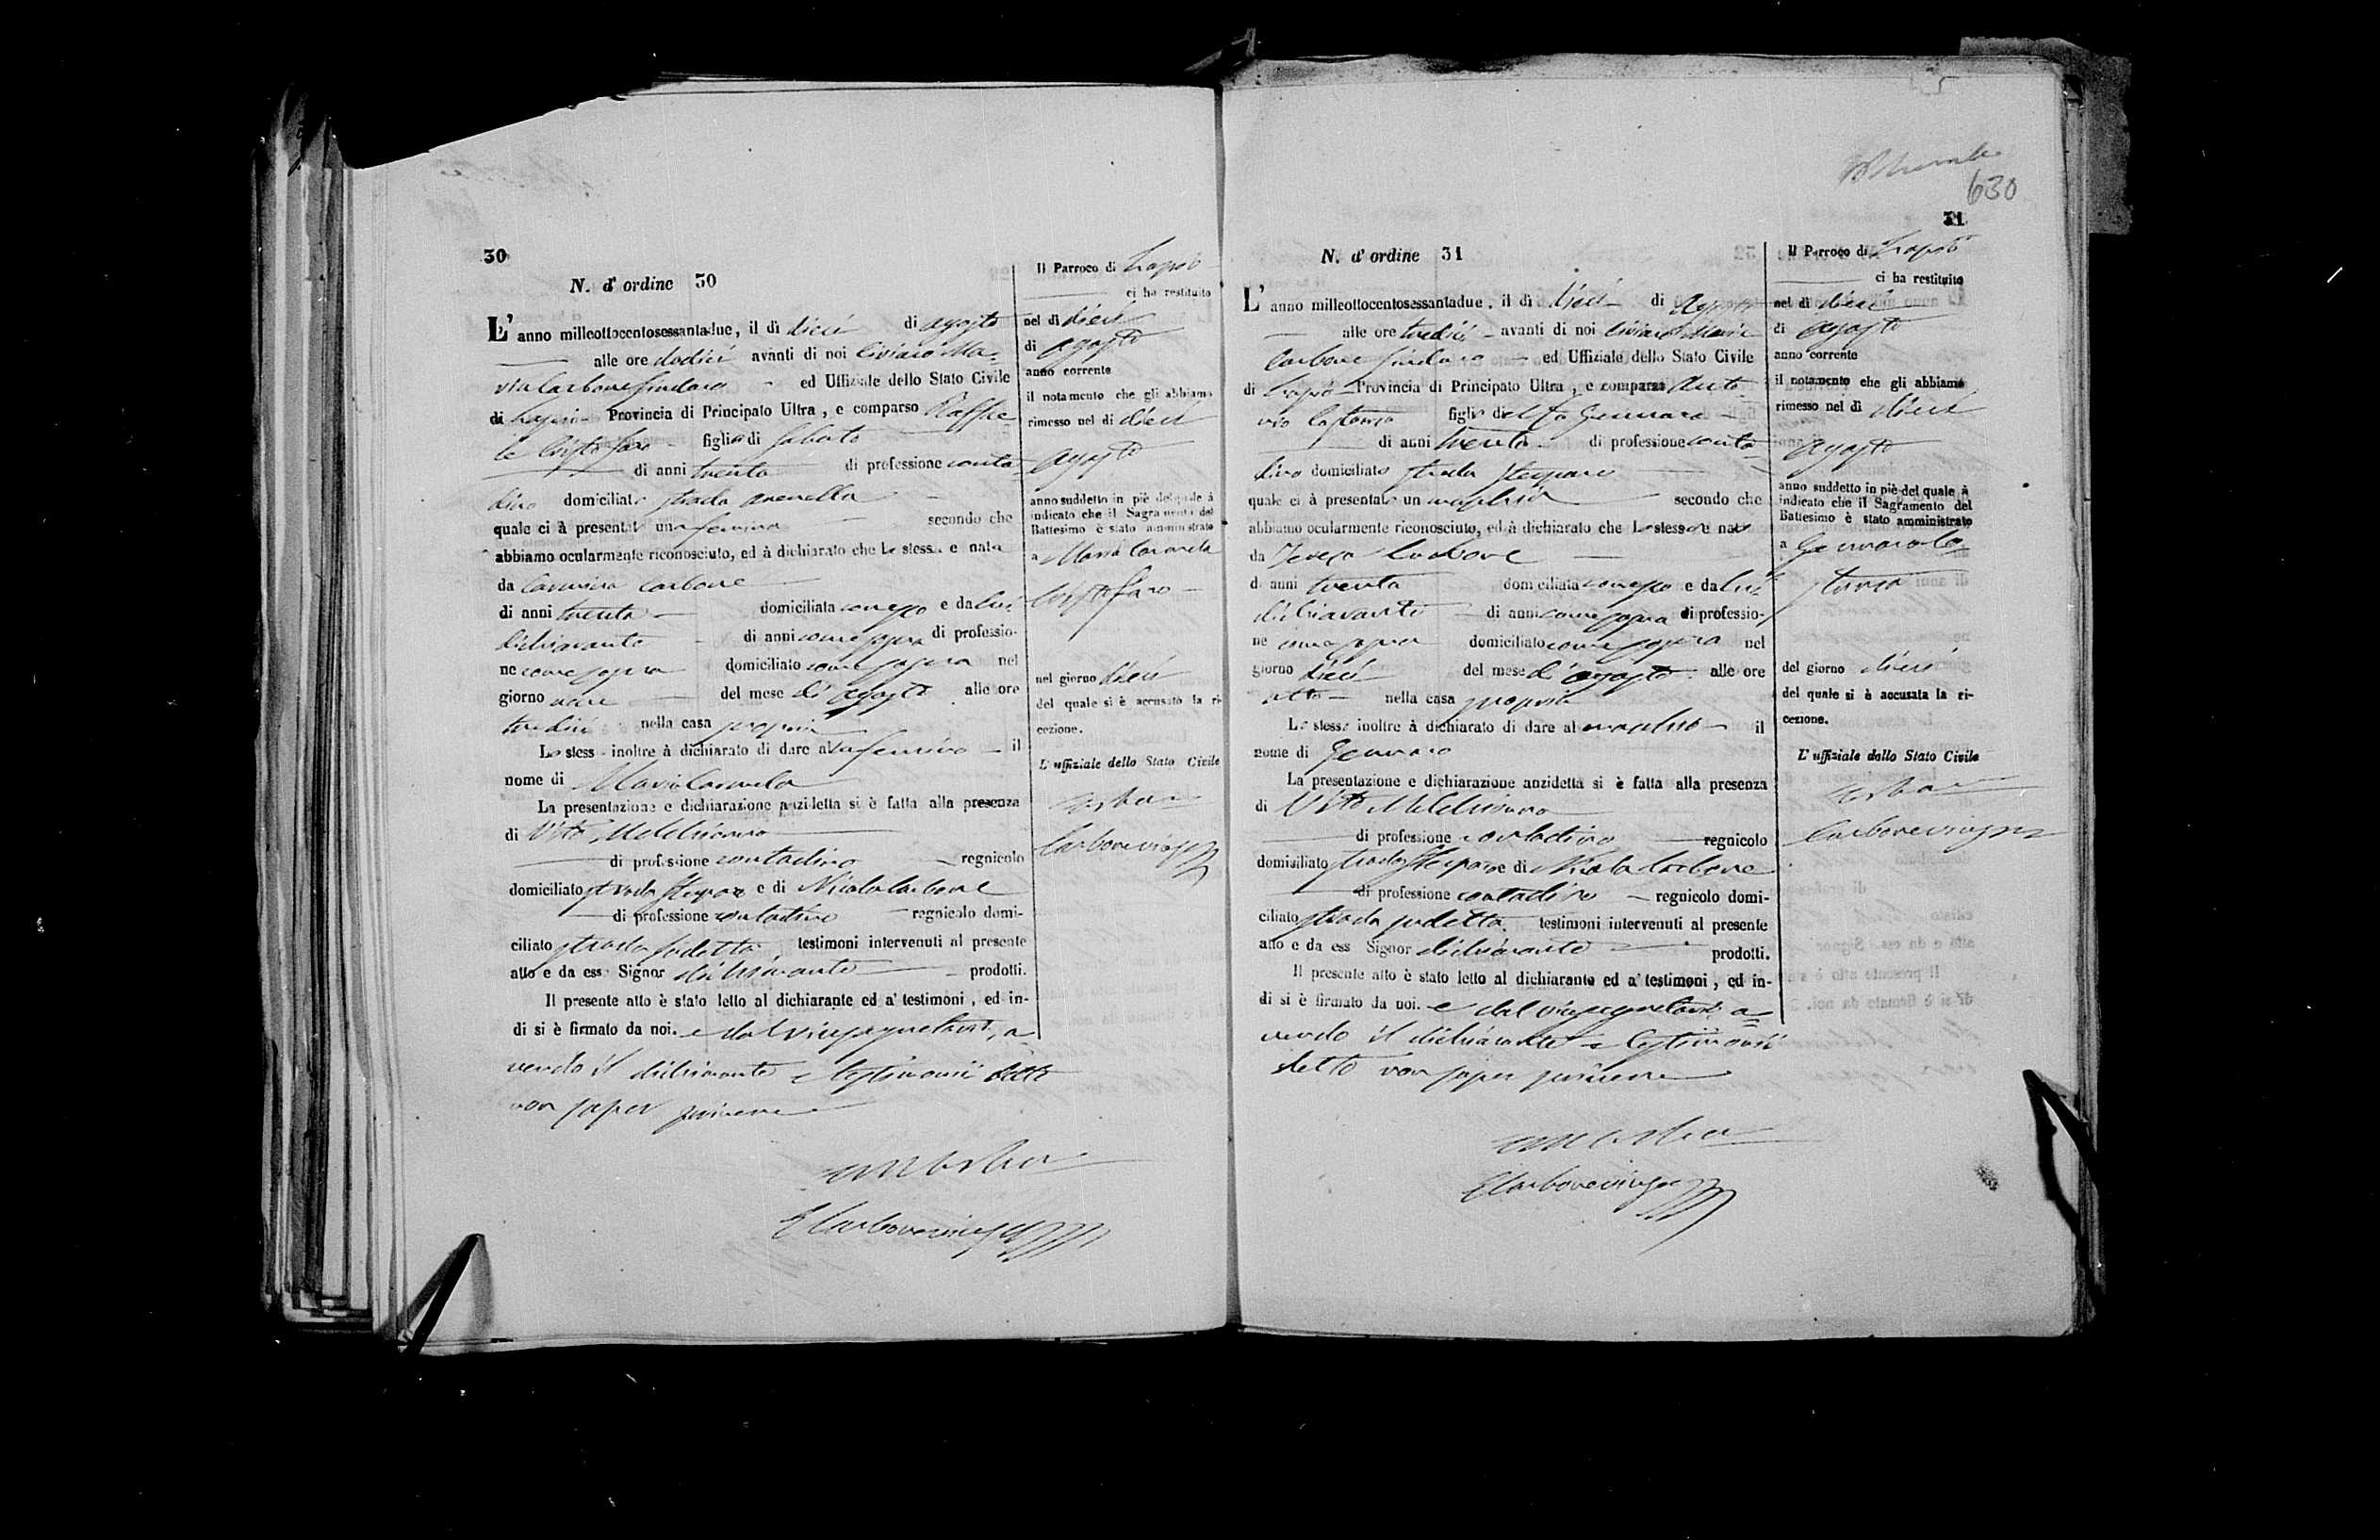 30
N. d'ordine 30
L'anno milleottocentosessantadue, il dì dieci di agosto
alle ore dodici avanti di noi Ciriaco Ma-
ria Carbone Sindaco ed Uffiziale dello Stato Civile
di Provincia di Principato Ultra, e comparso Raffae-
le Cristofaro figlio di Sabato
di anni trenta di professione conta-
dino domiciliato strada
quale ci à presentat una femina secondo che
abbiamo ocularmente riconosciuto, ed à dichiarato che la stessa e nata
da Carmina Carbone
di anni trenta domiciliata e da lui
dichiarante di anni come sopra di professio-
ne come sopra domiciliato come sopra nel
giorno nove del mese di agosto alle ore
tredici nella casa propria
Lo stess inoltre à dichiarato di dare alla femina il
nome di Maria Carmela
La presentazione e dichiarazione anzidetta si è fatta alla presenza
di Vito
di professione contadino regnicolo
domiciliato strada e di Nicola Carbone
di professione contadino regnicolo domi-
ciliato strada sudetta testimoni intervenuti al presente
atto e da ess Signor dichiarante prodotti.
Il presente atto è stato letto al dichiarante ed a' testimoni, ed in-
di si è firmato da noi. e dal a-
vendo il dichiarante e testimonii detto
non saper scrivere
Il Parroco di
ci ha restituito
nel dì dieci
di agosto
anno corrente
il notamento che gli abbiamo
rimesso nel dì dieci
agosto
anno suddetto in piè del quale à
indicato che il Sagramento del
Battesimo è stato amministrato
a Maria Carmela
Cristofaro
nel giorno dieci
del quale si è accusato la ri-
cezione.
L'uffiziale dello Stato Civile
630
31
N. d'ordine 31
L'anno milleottocentosessantadue, il dì dieci di Agosto
alle ore tredici avanti di noi Ciriaco Maria
Carbone Sindaco ed Uffiziale dello Stato Civile
di Provincia di Principato Ultra, e comparso Anto-
nio figlio di Gennaro
di anni trenta di professione conta-
dino domiciliato strada
quale ci à presentato un maschio secondo che
abbiamo ocularmente riconosciuto, ed à dichiarato che lo stesso è nato
da Teresa
di anni trenta domiciliata e da lui
dichiarante di anni come sopra di professio-
ne come sopra domiciliato come sopra nel
giorno dieci del mese di agosto alle ore
otto nella casa propria
Lo stesso inoltre à dichiarato di dare al maschio il
nome di Gennaro
La presentazione e dichiarazione anzidetta si è fatta alla presenza
di Vito
di professione contadino regnicolo
domiciliato strada e di Nicola Carbone
di professione contadino regnicolo domi-
ciliato strada sudetta testimoni intervenuti al presente
atto e da ess Signor dichiarante prodotti.
Il presente atto è stato letto al dichiarante ed a' testimoni, ed in-
di si è firmato da noi. e dal a-
vendo il dichiarante e testimonii
detto non saper scrivere
Il Parroco di
ci ha restituito
nel dì dieci
di agosto
anno corrente
il notamento che gli abbiamo
rimesso nel dì dieci
agosto
anno suddetto in piè del quale à
indicato che il Sagramento del
Battesimo è stato amministrato
a Gennaro
del giorno dieci
del quale si è accusata la ri-
cezione.
L'uffiziale dello Stato Civile